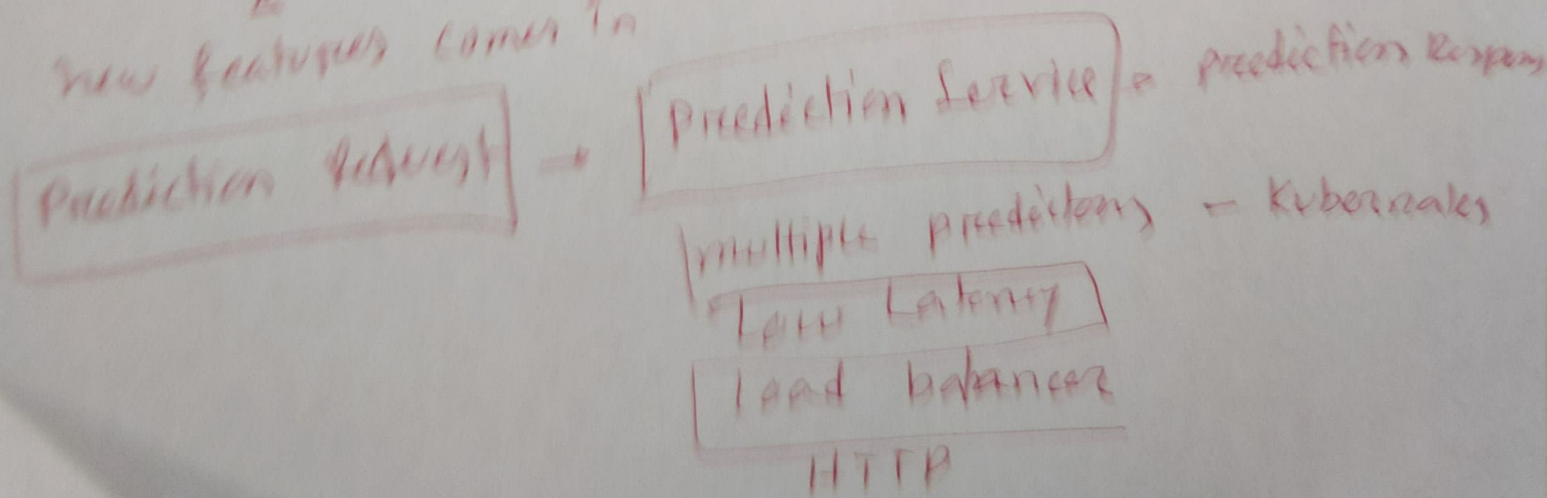 new features comes in
Prediction Request → Prediction Service - prediction Respons
multiple predictions - Kubernates
Low Latency
load balancer
HTTP